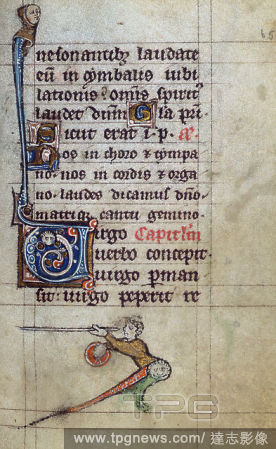 65
nesonantibꝫ laudate
eū in cymbalis iubi
lationis omīs spirit᷒
laudet dūm Gl̄a pr̄i
Sicut erat i·p· æ
Nos in choro ⁊ tympa
no· nos in cordis ⁊ orga
no· laudes dicamus dn̄o
matriqꝫ cantu gemino·
Virgo Capitl̄m
uerbo concepit·
uirgo p̄man
sit· uirgo peperit re
TPG
www.tpgnews.com/達志影像